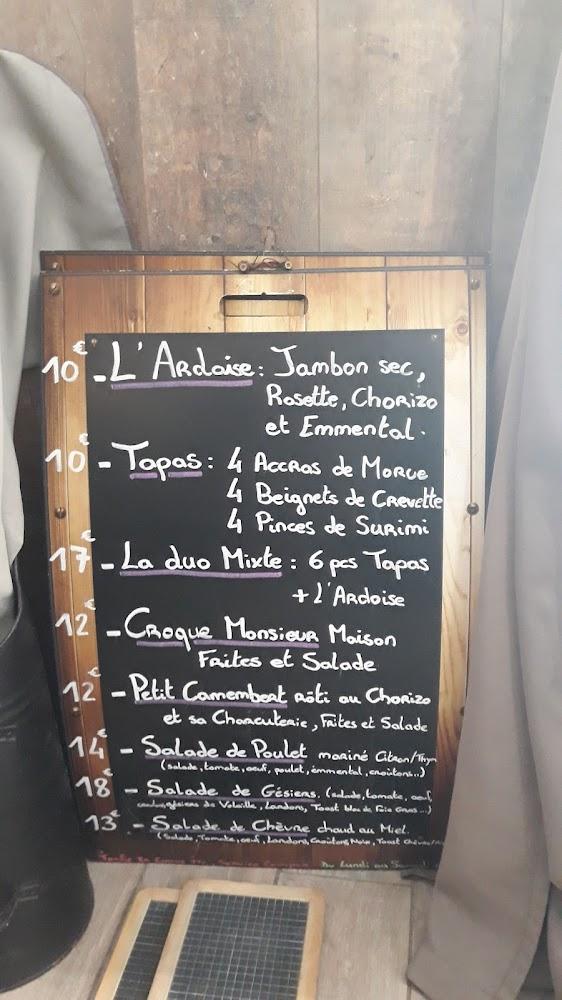 10€ - L'Ardoise : Jambon sec,
Rosette, Chorizo
et Emmental.
10€ - Tapas : 4 Accras de Morue
4 Beignets de Crevette
4 Pinces de Surimi
17€ - La duo Mixte : 6 pcs Tapas
+ L'Ardoise
12€ - Croque Monsieur Maison
Frites et Salade
12€ - Petit Camembert rôti au Chorizo
et sa Charcuterie, Frites et Salade
14€ - Salade de Poulet mariné Citron/Thym
(salade, tomate, oeuf, poulet, émmental, croûtons...)
18€ - Salade de Gésiers. (salade, tomate, oeuf,
gésiers de Volaille, Lardons, Toast bloc de Foie Gras...)
13€ - Salade de Chèvre chaud au Miel.
(Salade, Tomate, oeuf, Lardons, Croûtons, Noix, Toast Chèvre/
Du Lundi au